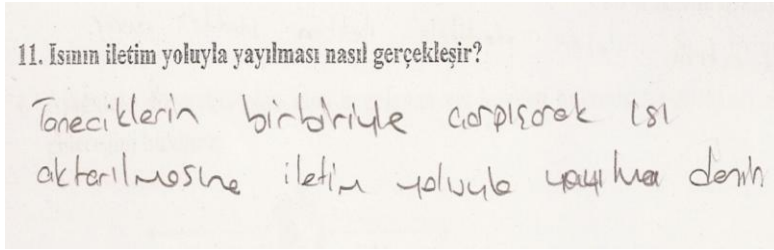 11. Isının iletim yoluyla yayılması nasıl gerçekleşir?
Taneciklerin birbiriyle çarpışarak ısı
aktarılmasına iletim yoluyla yayılma denir